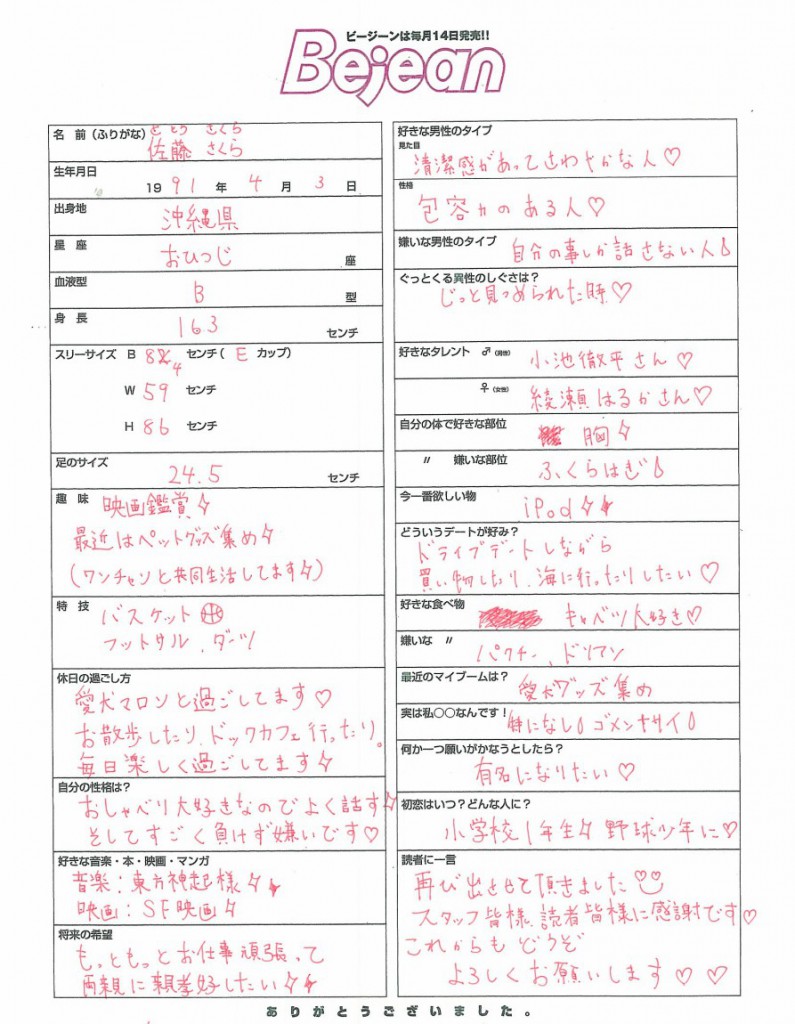 ビージーンは毎月14日発売!!
Bejean
名 前(ふりがな) さとう さくら
佐藤 さくら
生年月日
1991年 4月 3日
出身地
沖縄県
星 座
おひつじ 座
血液型
B 型
身 長
163 センチ
スリーサイズ B 84 センチ( E カップ)
W 59 センチ
H 86 センチ
足のサイズ
24.5 センチ
趣 味 映画鑑賞
最近はペットグッズ集め
(ワンチャンと共同生活してます)
特 技 バスケット
フットサル、ダーツ
休日の過ごし方
愛犬マロンと過ごしてます♡
お散歩したり、ドックカフェ行ったり。
毎日楽しく過ごしてます
自分の性格は?
おしゃべり大好きなのでよく話す
そしてすごく負けず嫌いです♡
好きな音楽・本・映画・マンガ
音楽:東方神起様
映画:SF映画
将来の希望
もっともっとお仕事頑張って
両親に親孝好したい
好きな男性のタイプ
見た目
清潔感があってさわやかな人♡
性格
包容力のある人♡
嫌いな男性のタイプ 自分の事しか話さない人
ぐっとくる異性のしぐさは?
じっと見つめられた時♡
好きなタレント ♂(男性) 小池徹平さん♡
♀(女性) 綾瀬はるかさん♡
自分の体で好きな部位 胸
〃 嫌いな部位 ふくらはぎ
今一番欲しい物 iPod
どういうデートが好み?
ドライブデートしながら
買い物したり、海に行ったりしたい♡
好きな食べ物 キャベツ大好き♡
嫌いな 〃 パクチー、ドリアン
最近のマイブームは? 愛犬グッズ集め
実は私○○なんです! 特になし ゴメンナサイ
何か一つ願いがかなうとしたら?
有名になりたい♡
初恋はいつ?どんな人に?
小学校1年生 野球少年に♡
読者に一言
再び出させて頂きました
スタッフ皆様、読者皆様に感謝です♡
これからもどうぞ
よろしくお願いします♡♡
ありがとうございました。